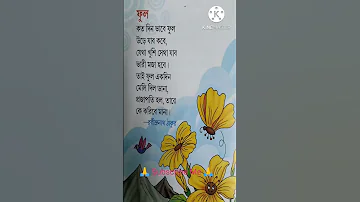 ফুল
কত দিন ভাবে ফুল
উড়ে যাব কবে,
যেথা খুশি সেথা যাব
ভারী মজা হবে।
তাই ফুল একদিন
মেলি দিল ডানা,
প্রজাপতি হল, তারে
কে করিবে মানা।
—রবীন্দ্রনাথ ঠাকুর